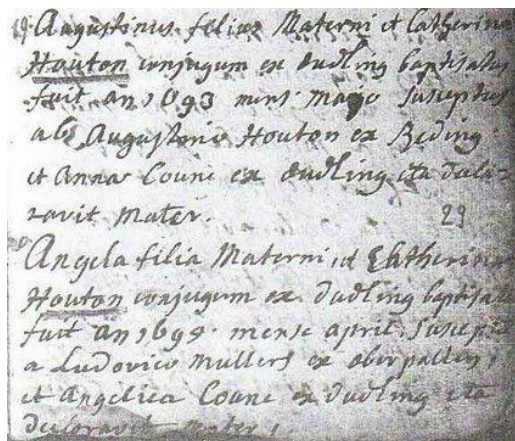 19 Augustinus filius Materni et Catherina
Houton conjugum ex dudling baptisatus
fuit an 1693 mens majo susceptus
ab Augustino Houton ex Reding
et Anna Coune ex dudling ita decla-
ravit mater.
29
Angela filia Materni et Chatherina
Houton conjugum ex dudling baptisata
fuit an 1699. mense april. suscepta
a Ludovico Mullers ex oberpallen,
et Angelica Coune ex dudling ita
declaravit mater,